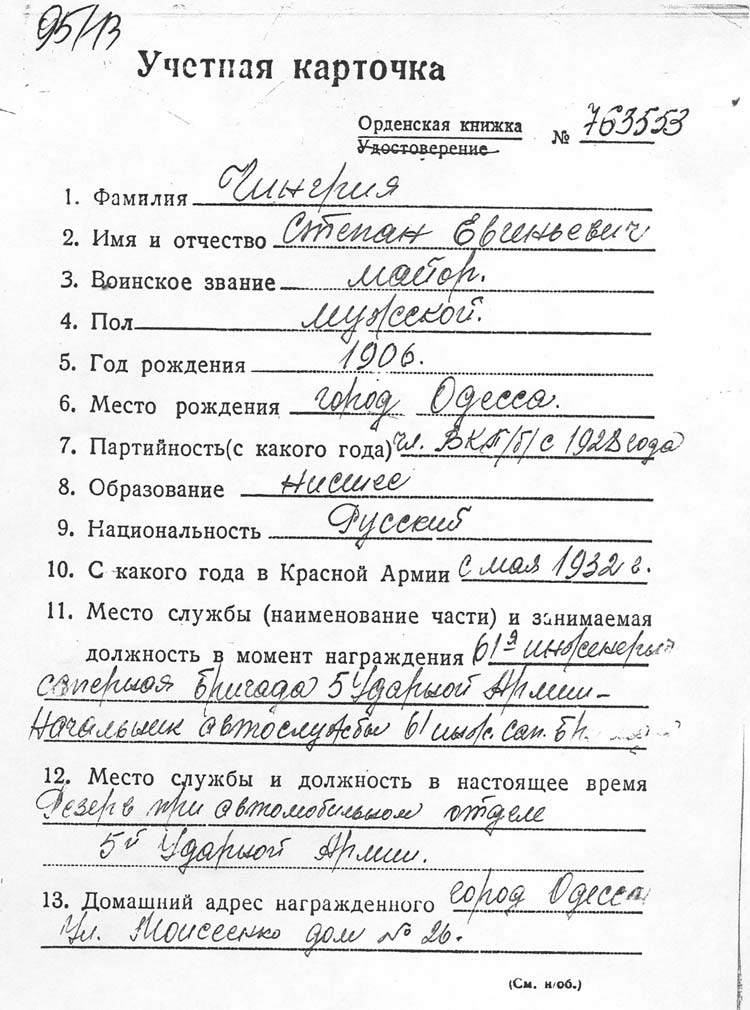 95/13
Учетная карточка
Орденская книжка
Удостоверение
№ 763553
1. Фамилия Чингрия
2. Имя и отчество Степан Евгеньевич
3. Воинское звание майор.
4. Пол мужской.
5. Год рождения 1906.
6. Место рождения город Одесса.
7. Партийность (с какого года) чл. ВКП/б/ с 1928 года
8. Образование низшее
9. Национальность Русский
10. С какого года в Красной Армии с мая 1932 г.
11. Место службы (наименование части) и занимаемая
должность в момент награждения 61я инженерно
саперная бригада 5 Ударной Армии –
Начальник автослужбы 61 инж. сап.
12. Место службы и должность в настоящее время
Резерв при автомобильном отделе
5й Ударной Армии.
13. Домашний адрес награжденного город Одесса
Ул. Моисеенко дом № 26.
(См. н/об.)